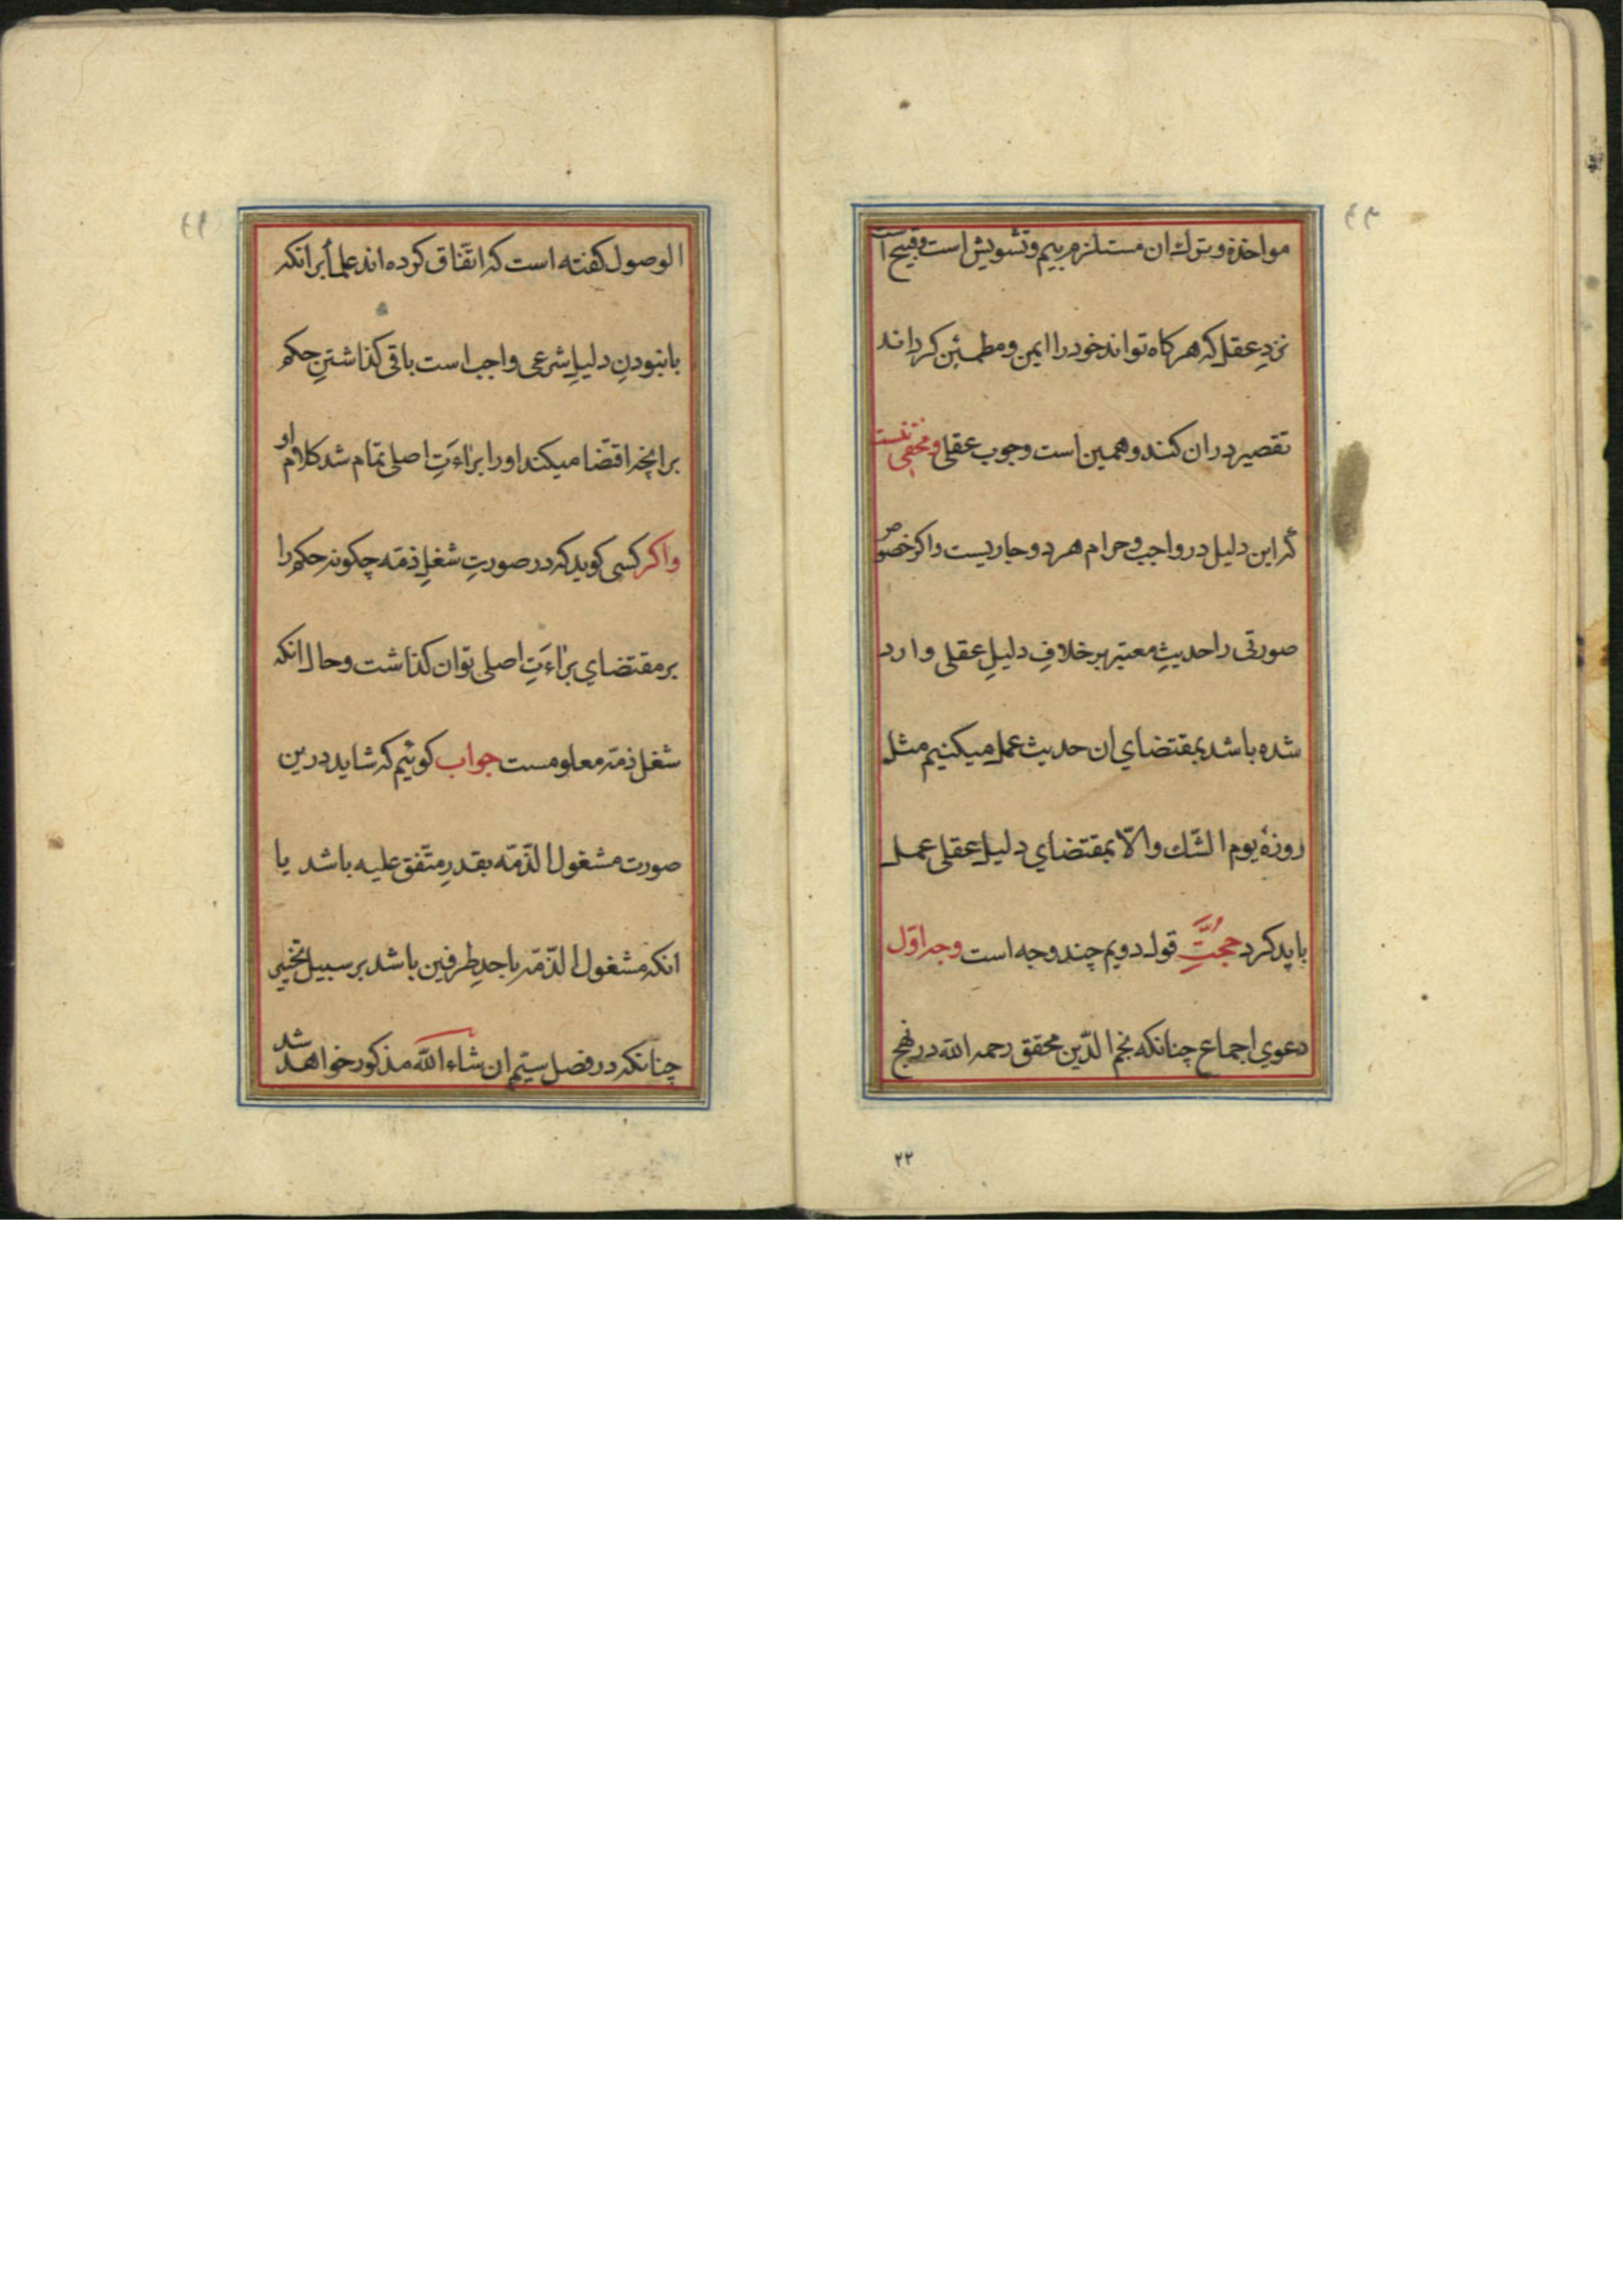 مواخذه و ترك ان مستلزم بیم و تشویش است و قبیح است
نزدِ عقل که هرکاه تواند خود را ایمن و مطمئن کرداند
تقصیر در ان کند و همین است وجوب عقلی و مخفی نیست
که این دلیل در واجب و حرام هر دو جاریست و اکر خصوص
صورتی را حدیثِ معتبر بر خلافِ دلیلِ عقلی وارد
شده باشد بمقتضای ان حدیث عمل میکنیم مثل
روزهٔ یوم الشّك والّا بمقتضای دلیل عقلی عمل
باید کرد حجّتِ قول دویم چند وجه است وجه اوّل
دعوي اجماع چنانکه نجم الدّین محقق رحمه الله در نهج
۲۲
الوصول کفته است که اتفاق کرده اند علماء بر انکه
با نبودنِ دلیلِ شرعی واجب است باقی کذاشتنِ حکم
بر انچه اقتضا میکند اورا براءَتِ اصلی تمام شد کلام او
واکر کسی کوید که در صورتِ شغلِ ذمّه چکونه حکم را
بر مقتضاي براءَتِ اصلی توان کذاشت و حال انکه
شغل ذمّه معلومست جواب کوئیم که شاید درین
صورت مشغول الذّمّه بقدرِ متّفق علیه باشد یا
انکه مشغول الذّمّه باحدِ طرفین باشد بر سبیل تخییر
چنانکه در فصل سیّم ان شاء الله مذکور خواهد شد